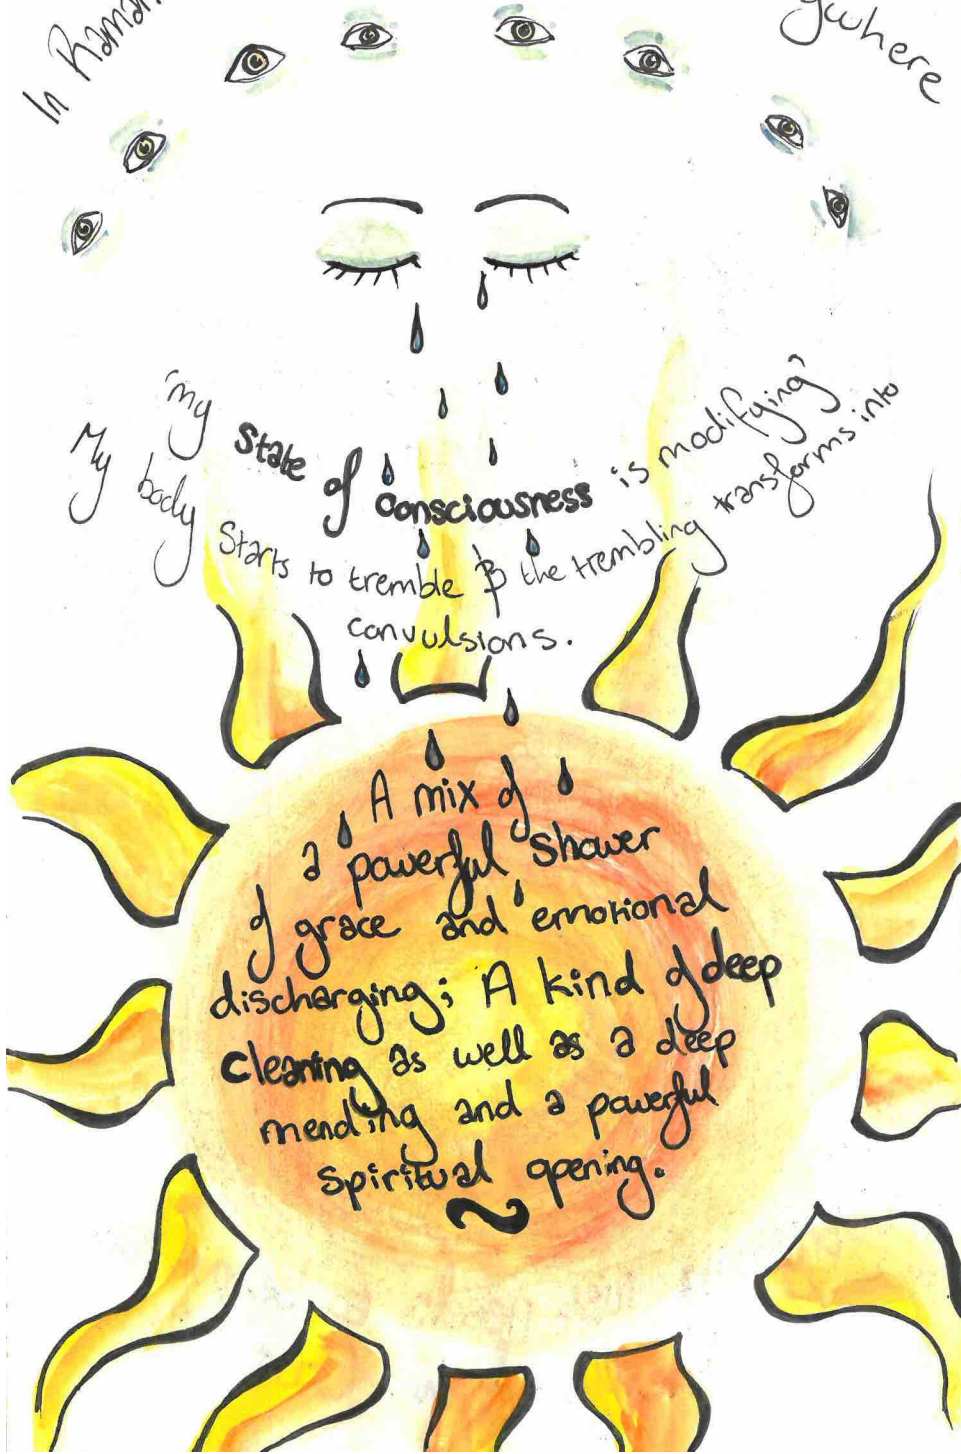 In
'my state of consciousness is modifying'
My body starts to tremble & the trembling transforms into
convulsions.
A mix of
a powerful shower
of grace and emotional
discharging; A kind of deep
cleaning as well as a deep
mending and a powerful
spiritual opening.